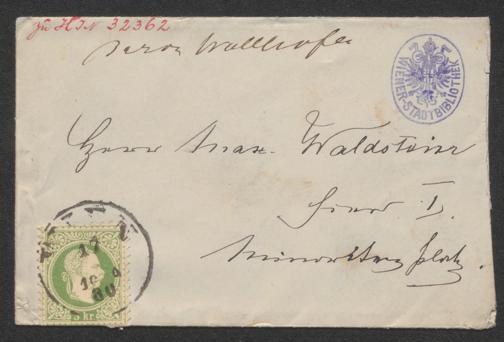 Zu H.I.N 32362
Baron Wallhofen
WIENER-STADTBIBLIOTHEK
Herrn Max. Waldstein
I.
Minoritenplatz.
WIEN
17
80
3 kr.